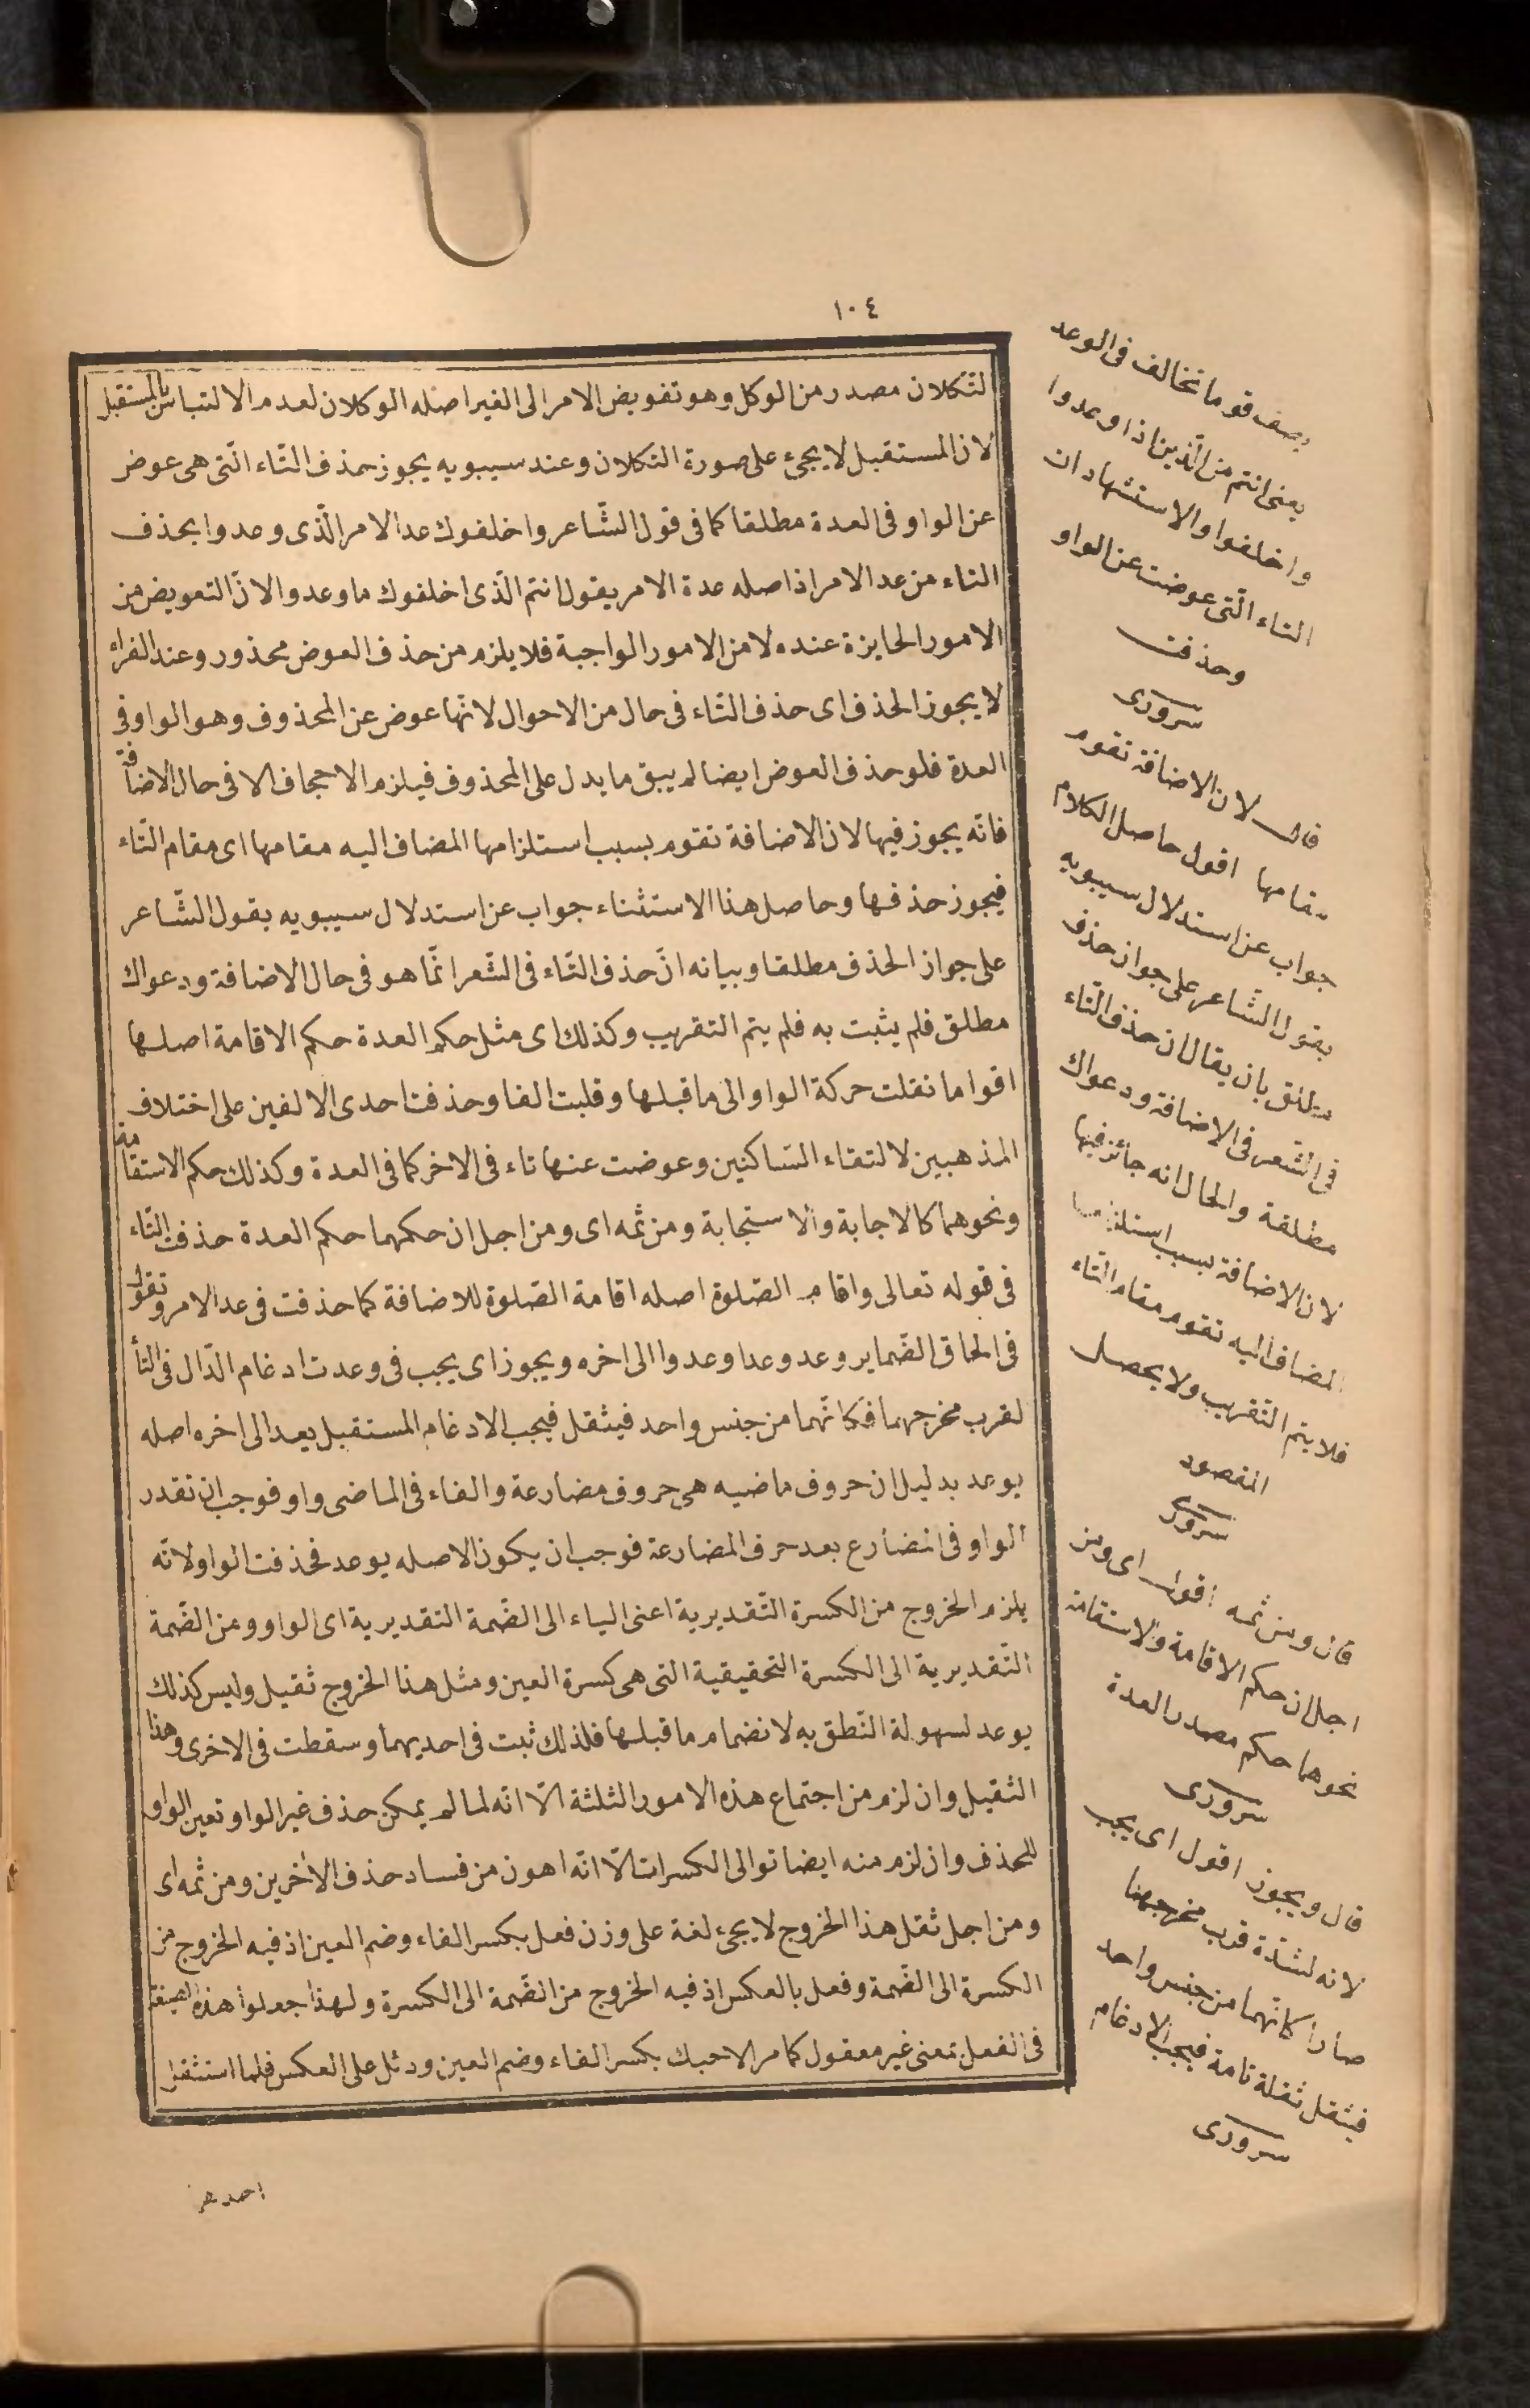 ١٠٤
التكلان مصدر من الوكل وهو تفويض الامر الى الغير اصله الوكلان لعدم الالتباس بالمستقبل
لان المستقبل لا يجئ على صورة التكلان وعند سيبويه يجوز حذف التّاء الّتى هى عوض
عن الواو فى العدة مطلقا كما فى قول الشّاعر واخلفوك عد الامر الّذى وعدوا بحذف
التاء من عد الامر اذ اصله عدة الامر يقول انتم الّذى اخلفوك ما وعدوا لانّ التعويض من
الامور الجايزة عنده لا من الامور الواجبة فلا يلزم من حذف العوض محذور وعند الفراء
لا يجوز الحذف اى حذف التّاء فى حال من الاحوال لانّها عوض عن المحذوف وهو الواو فى
العدة فلو حذف العوض ايضا لم يبق ما يدل على المحذوف فيلزم الاجحاف الا فى حال الاضافة
فانّه يجوز فيها لان الاضافة تقوم بسبب استلزامها المضاف اليه مقامها اى مقام التّاء
فيجوز حذفها وحاصل هذا الاستثناء جواب عن استدلال سيبويه بقول الشّاعر
على جواز الحذف مطلقا وبيانه انّ حذف التّاء فى الشّعر انّما هو فى حال الاضافة ودعواك
مطلق فلم يثبت به فلم يتم التقريب وكذلك اى مثل حكم العدة حكم الاقامة اصلها
اقواما نقلت حركة الواو الى ما قبلها وقلبت الفا وحذفت احدى الالفين على اختلاف
المذهبين لالتقاء السّاكنين وعوضت عنها تاء فى الاخر كما فى العدة وكذلك حكم الاستقامة
ونحوهما كالاجابة والاستجابة ومن ثمه اى ومن اجل ان حكمهما حكم العدة حذفت التّاء
فى قوله تعالى واقام الصّلوة اصله اقامة الصّلوة للاضافة كما حذفت فى عد الامر وتقول
فى الحاق الضّماير وعد وعدا وعدوا الى اخره ويجوز اى يجب فى وعدت ادغام الدّال فى التأ
لقرب مخرجهما فكانّهما من جنس واحد فيثقل فيجب الادغام المستقبل يعد الى اخره اصله
يوعد بدليل ان حروف ماضيه هى حروف مضارعة والفاء فى الماضى واو فوجب ان تقدر
الواو فى المضارع بعد حرف المضارعة فوجب ان يكون الاصله يوعد فحذفت الواو لانّه
يلزم الخروج من الكسرة التّقديرية اعنى الياء الى الضّمة التقديرية اى الواو ومن الضّمة
التّقديرية الى الكسرة التحقيقية التى هى كسرة العين ومثل هذا الخروج ثقيل وليس كذلك
يوعد لسهولة النّطق به لانضمام ما قبلها فلذلك ثبت فى احديهما وسقطت فى الاخرى وهذا
الثقيل وان لزم من اجتماع هذه الامور الثلثة الّا انّه لما لم يمكن حذف غير الواو تعين الواو
للحذف وان لزم منه ايضا توالى الكسرات الّا انّه اهون من فساد حذف الاخرين ومن ثمه اى
ومن اجل ثقل هذا الخروج لا يجئ لغة على وزن فعل بكسر الفاء وضم العين اذ فيه الخروج من
الكسرة الى الضّمة وفعل بالعكس اذ فيه الخروج من الضّمة الى الكسرة ولهذا جعلوا هذه الصيغة
فى الفعل بمعنى غير معقول كما مر الا حبك بكسر الفاء وضم العين ودئل على العكس فلما استثقل
يصف قوما تخالف فى الوعد
يعنى انتم من الّذين اذا وعدوا
واخلفوا والاستشهاد ان
التاء الّتى عوضت عن الواو
وحذفت
سرورى
قال لان الاضافة تقوم
مقامها اقول حاصل الكلام
جواب عن استدلال سيبويه
بقول الشّاعر على جواز حذف
مطلق بان يقال ان حذف التّاء
فى الشّعر فى الاضافة ودعواك
مطلقة والحال انه جائز فيها
لان الاضافة بسبب استلزامها
المضاف اليه تقوم مقام التّاء
فلا يتم التّقريب ولا يحصل
المقصود
سرورى
قال ومن ثمه اقول اى ومن
اجل ان حكم الاقامة والاستقامة
نحوهما حكم مصدر العدة
سرورى
قال ويجوز اقول اى يجب
لانه لشدّة قرب مخرجهما
صارا كانّهما من جنس واحد
فيثقل ثقلة تامة فيجب الادغام
سرورى